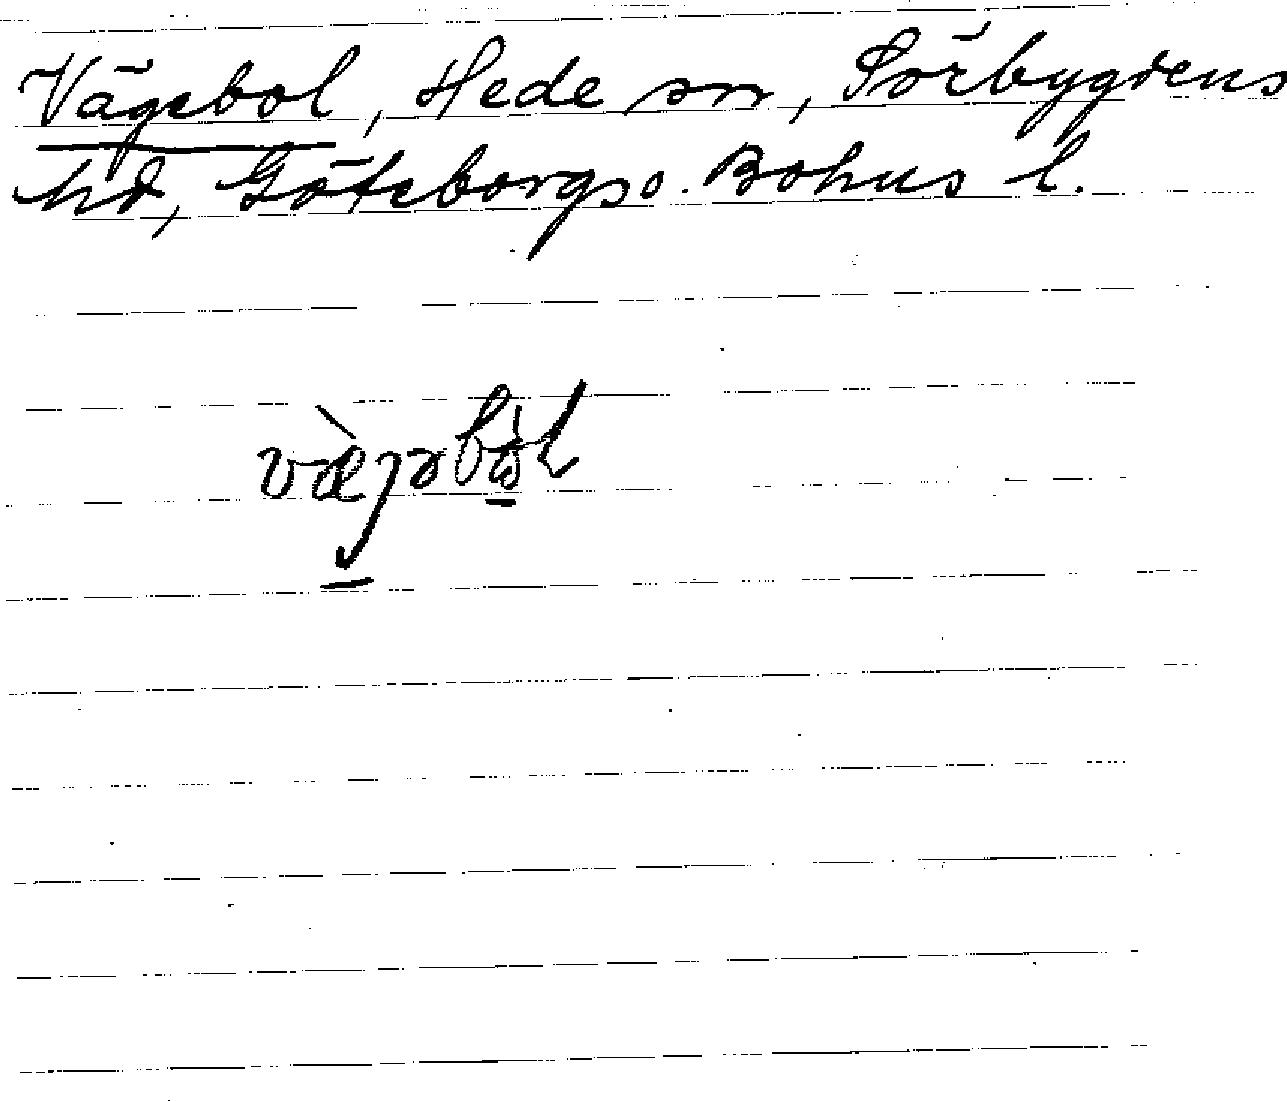 Vägebol, Hede sn, Sörbygdens
hd, Göteborgs o. Bohus l.
væ̀ȷəbɷ̀ɫ